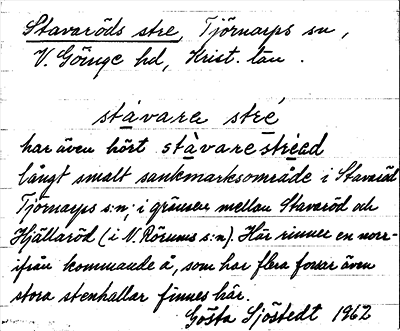 Stavaröds stre, Tjörnarps sn,
V. Göinge hd, Krist. län.
stàvare stré
har även hört stàvarestréed
långt smalt sankmarksområde i Stavaröd
Tjörnarps s:n; i gränsen mellan Stavaröd och
Hjällaröd (i N. Rörums s:n). Här rinner en norr-
ifrån kommande å, som har flera forsar även
stora stenhallar finnes här.
Gösta Sjöstedt 1962